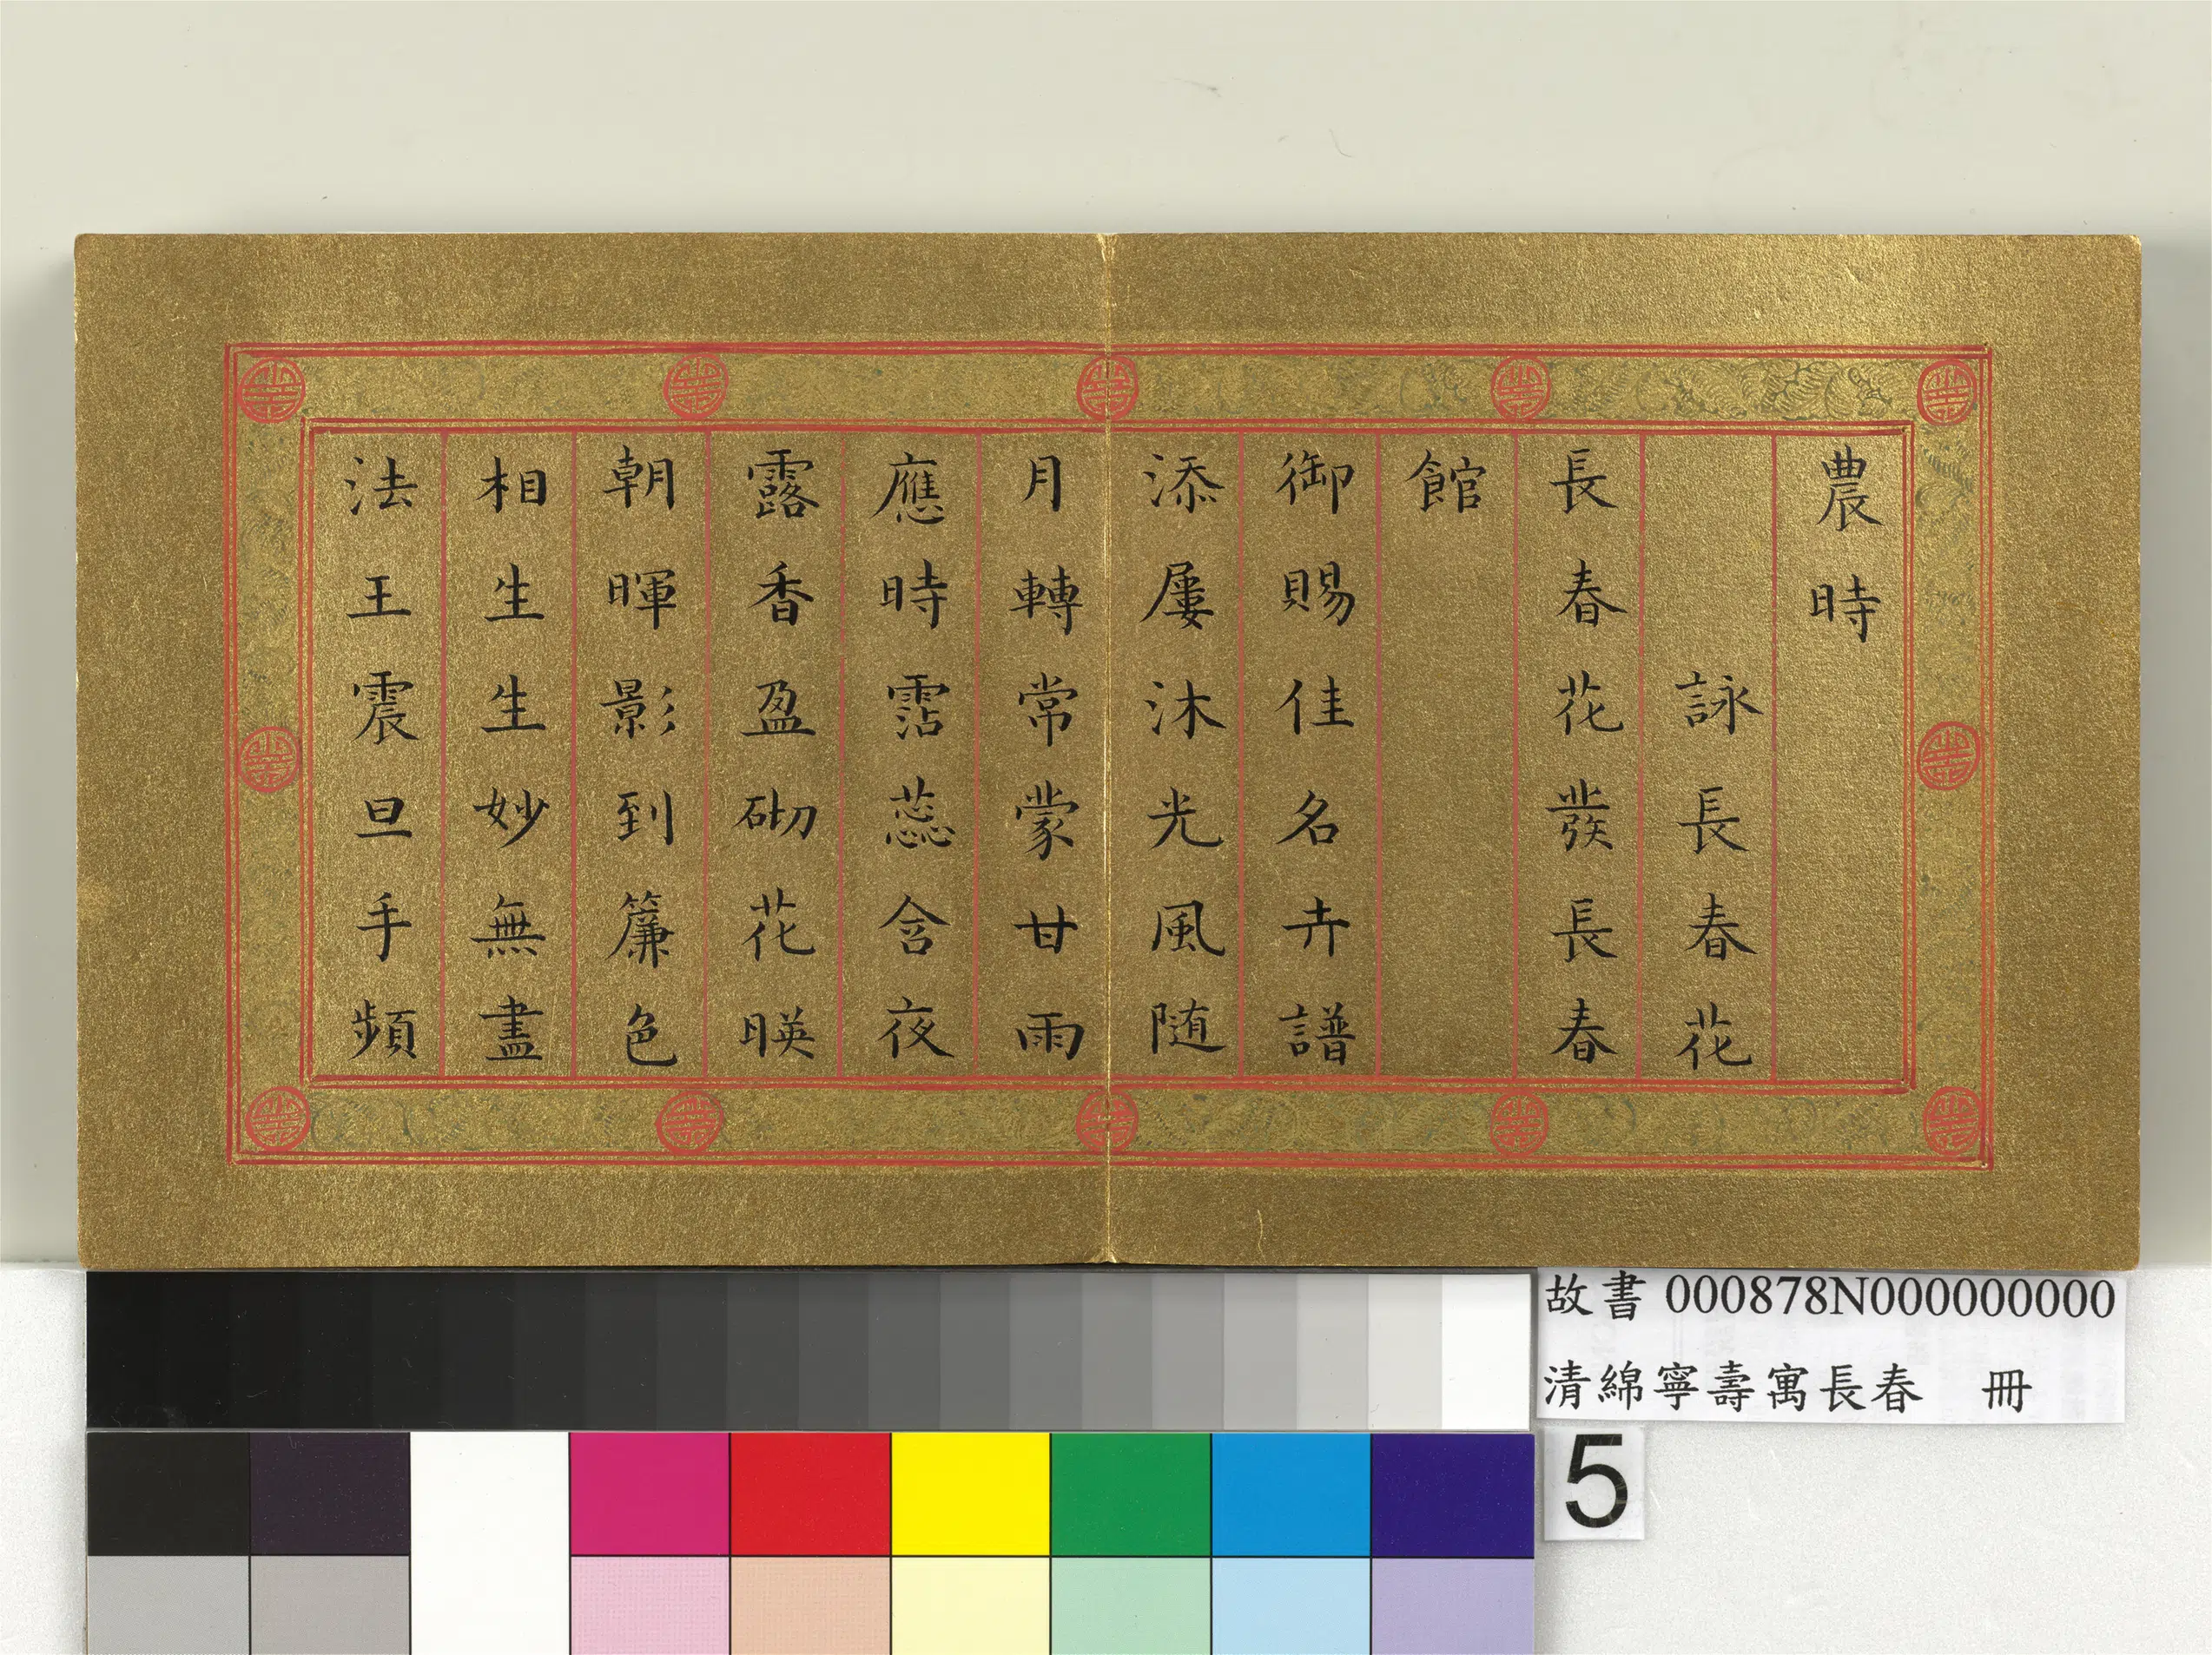 農時
詠長春花
長春花發長春
館
御賜佳名卉譜
添屢沐光風随
月轉常蒙甘雨
應時霑蕊含夜
露香盈砌花暎
朝暉影到簾色
相生生妙無盡
法王震旦手頻
故書 000878N000000000
清綿寧壽寓長春 冊
5